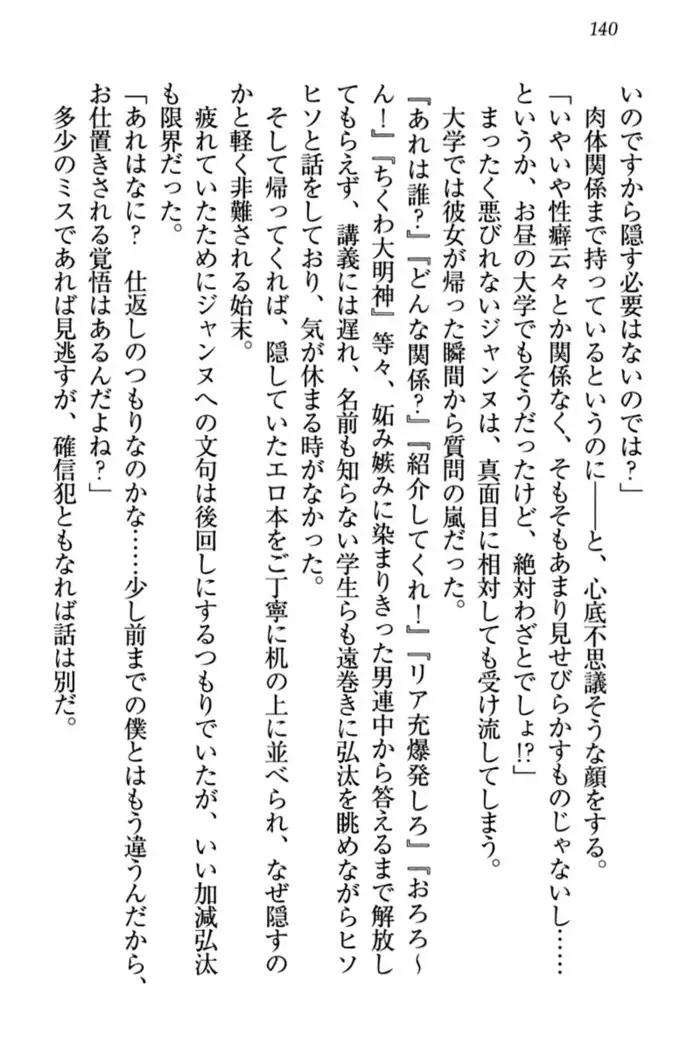 140
いのですから隠す必要はないのでは？」
肉体関係まで持っているというのに――と、心底不思議そうな顔をする。
「いやいや性癖云々とか関係なく、そもそもあまり見せびらかすものじゃないし……
というか、お昼の大学でもそうだったけど、絶対わざとでしょ!?」
まったく悪びれないジャンヌは、真面目に相対しても受け流してしまう。
大学では彼女が帰った瞬間から質問の嵐だった。
『あれは誰？』『どんな関係？』『紹介してくれ！』『リア充爆発しろ』『おろろ～
ん！』『ちくわ大明神』等々、妬み嫉みに染まりきった男連中から答えるまで解放し
てもらえず、講義には遅れ、名前も知らない学生らも遠巻きに弘汰を眺めながらヒソ
ヒソと話をしており、気が休まる時がなかった。
そして帰ってくれば、隠していたエロ本をご丁寧に机の上に並べられ、なぜ隠すの
かと軽く非難される始末。
疲れていたためにジャンヌへの文句は後回しにするつもりでいたが、いい加減弘汰
も限界だった。
「あれはなに？　仕返しのつもりなのかな……少し前までの僕とはもう違うんだから、
お仕置きされる覚悟はあるんだよね？」
多少のミスであれば見逃すが、確信犯ともなれば話は別だ。